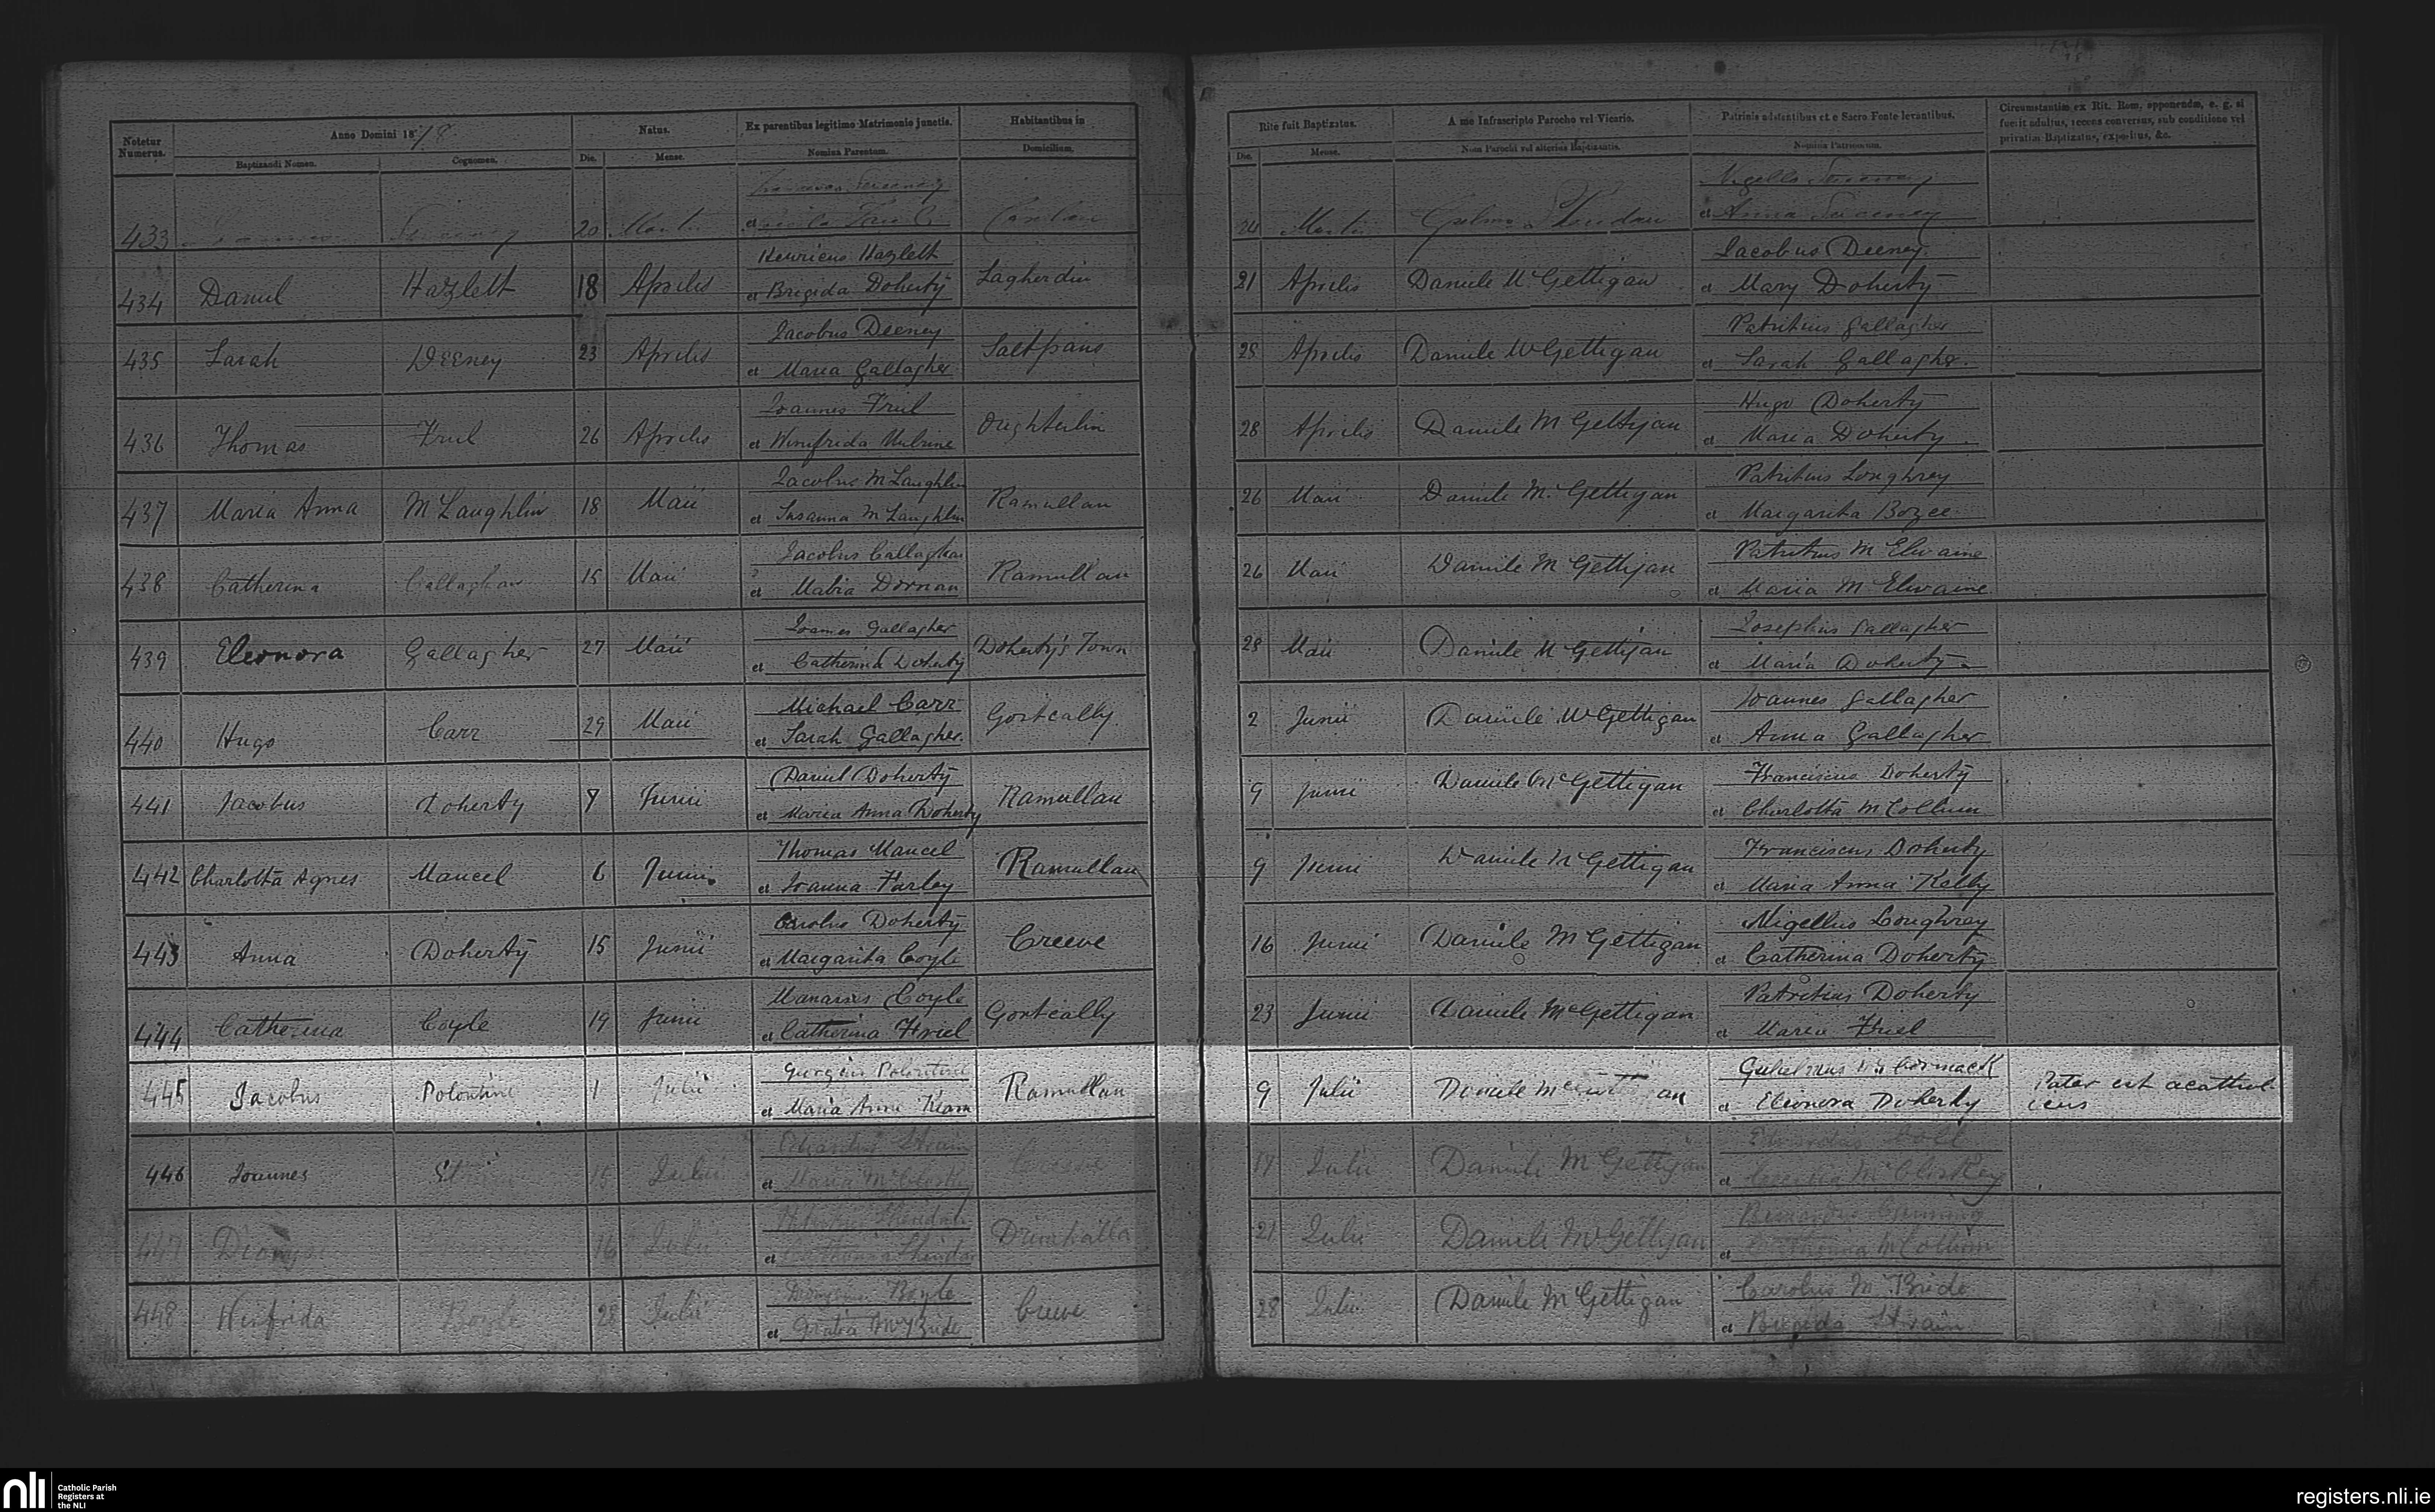 Notetur Numerus.
Anno Domini 1878
Natus.
Ex parentibus legitimo Matrimonio junctis.
Habitantibus in
Rite fuit Baptizatus.
A me Infrascripto Parocho vel Vicario.
Patrinis adstantibus et e Sacro Fonte levantibus.
Circumstantiæ ex Rit. Rom. opponendæ, e. g. si
fuerit adultus, recens conversus, sub conditione vel
privatim Baptizatus, expositus, &c.
Baptizandi Nomen.
Cognomen.
Die.
Mense.
Nomina Parentum.
Domicilium.
Die.
Mense.
Nom Parochi vel alterius Baptizantis.
Nomina Patrinorum.
433 20 Martii
et
24 Martii
et Anna
434 Daniel Hazlett 18 Aprilis Henricus Hazlett
et Brigida Doherty Lagherdin
21 Aprilis Daniele McGettigan Jacobus Deeney
et Mary Doherty
435 Sarah Deeney 23 Aprilis Jacobus Deeney
et Maria Gallagher Saltpans
25 Aprilis Daniele McGettigan Patritius Gallagher
et Sarah Gallagher.
436 Thomas Friel 26 Aprilis Joannes Friel
et Winifrida Oughterlin
28 Aprilis Daniele McGettigan Hugo Doherty
et Maria Doherty
437 Maria Anna McLaughlin 18 Maii Jacobus McLaughlin
et Susanna McLaughlin Ramullan
26 Maii Daniele McGettigan Patritius Loughrey
et Margarita
438 Catherina Callaghan 15 Maii Jacobus Callaghan
et Dornan Ramullan
26 Maii Daniele McGettigan Patritius McElwaine
et Maria McElwaine
439 Eleonora Gallagher 27 Maii Gallagher
et Catherina Doherty Doherty's Town
28 Maii Daniele McGettigan Josephus Gallagher
et Maria Doherty
440 Hugo Carr 29 Maii Michael Carr
et Sarah Gallagher. Gortcally
2 Junii Daniele McGettigan Joannes Gallagher
et Anna Gallagher
441 Jacobus Doherty Junii Daniel Doherty
et Maria Anna Doherty Ramullan
9 Junii Daniele McGettigan Franciscus Doherty
et Charlotta McCollum
442 Charlotta Agnes Mancel 6 Junii Thomas Mancel
et Joanna Farley Ramullan
9 Junii Daniele McGettigan Franciscus Doherty
et Maria Anna Kelly
443 Anna Doherty 15 Junii Carolus Doherty
et Margarita Coyle Creeve
16 Junii Daniele McGettigan Nigellus Loughrey
et Catherina Doherty
444 Catherina Coyle 19 Junii Manasses Coyle
et Catherina Friel Gortcally
23 Junii Daniele McGettigan Patritius Doherty
et Maria Friel
445 Jacobus Polontine 1 Julii Polontine
et Maria Anna Ramullan
9 Julii Daniele Gulielmus McCormack
et Eleonora Doherty
Pater est acathol
icus
446 Joannes 15 Julii
et Maria Creeve
17 Julii Daniele McGettigan
et McCloskey
447 16 Julii
et
21 Julii Daniele McGettigan
et McCollum
448 Winfrida Boyle 28 Julii Boyle
et McBride Creeve
28 Julii Daniele McGettigan Carolus McBride
et Brigida Strain
nli
Catholic Parish
Registers at
the NLI
registers.nli.ie